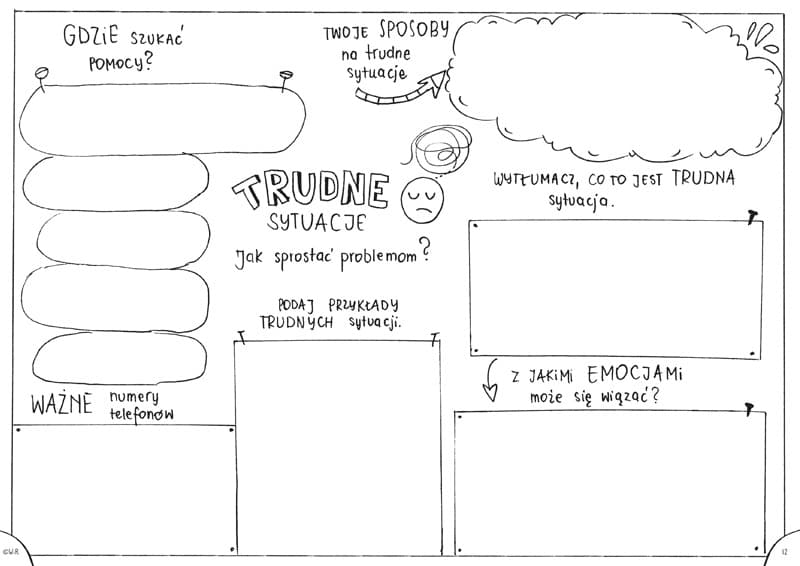 GDZIE SZUKAĆ
POMOCY?
TWOJE SPOSOBY
na trudne
sytuacje
TRUDNE
SYTUACJE
Jak sprostać problemom?
WYTŁUMACZ, CO TO JEST TRUDNA
sytuacja.
PODAJ PRZYKŁADY
TRUDNYCH sytuacji.
Z JAKIMI EMOCJAMI
może się wiązać?
WAŻNE numery
telefonów
©W.R
12